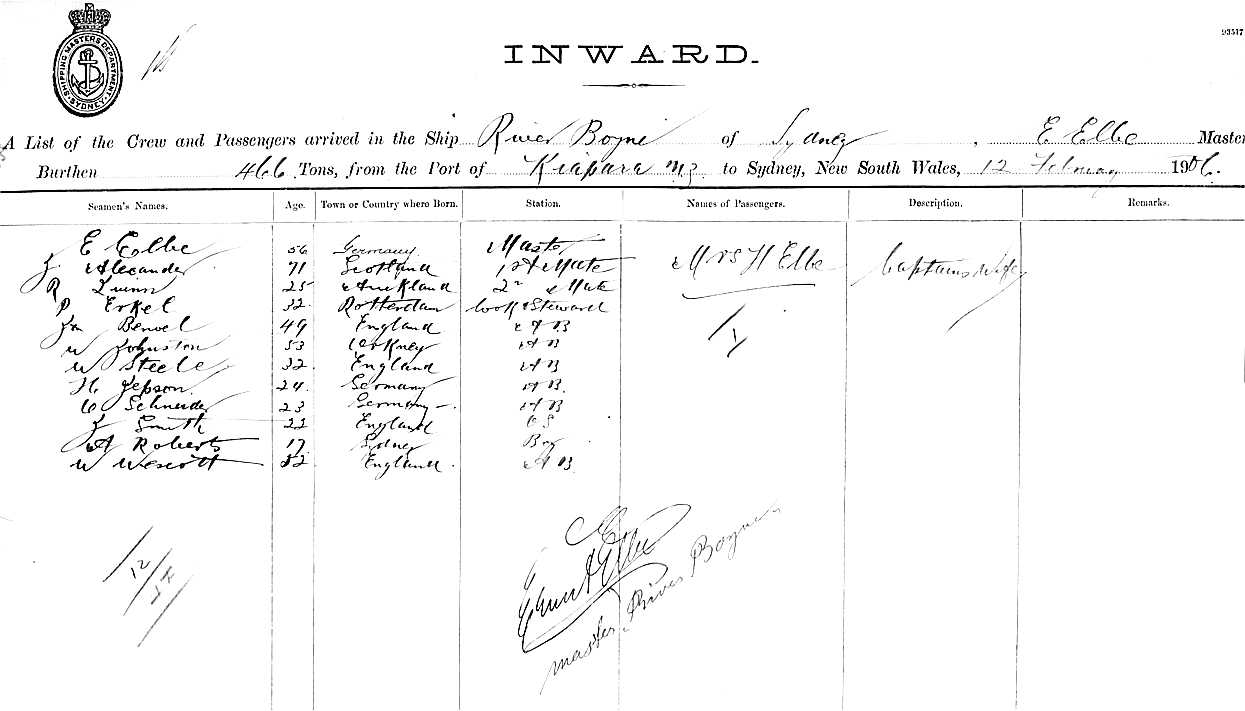 SHIPPING MASTERS DEPARTMENT
SYDNEY
93517
INWARD.
A List of the Crew and Passengers arrived in the Ship River Boyne of Sydney, E Elbe Master
Burthen 466 Tons, from the Port of Kiapara NZ to Sydney, New South Wales, 12 February 1906.
Seamen's Names. Age. Town or Country where Born. Station. Names of Passengers. Description. Remarks.
E Elbe 56 Germany Master Mrs H Elbe Captains Wife
J Alexander 71 Scotland 1st Mate
R Quinn 25 Auckland 2n Mate
P Erkel 32 Rotterdam Cook & Steward
Benoel 49 England AB
W Johnston 53 Orkney AB
W Steele 32 England AB
H Jepson 24 Germany AB
C Schneider 23 Germany AB
J Smith 22 England OS
A Roberts 17 Sidney Boy
W Wescott 52 England AB
1
12
Elbe
master River Boyne